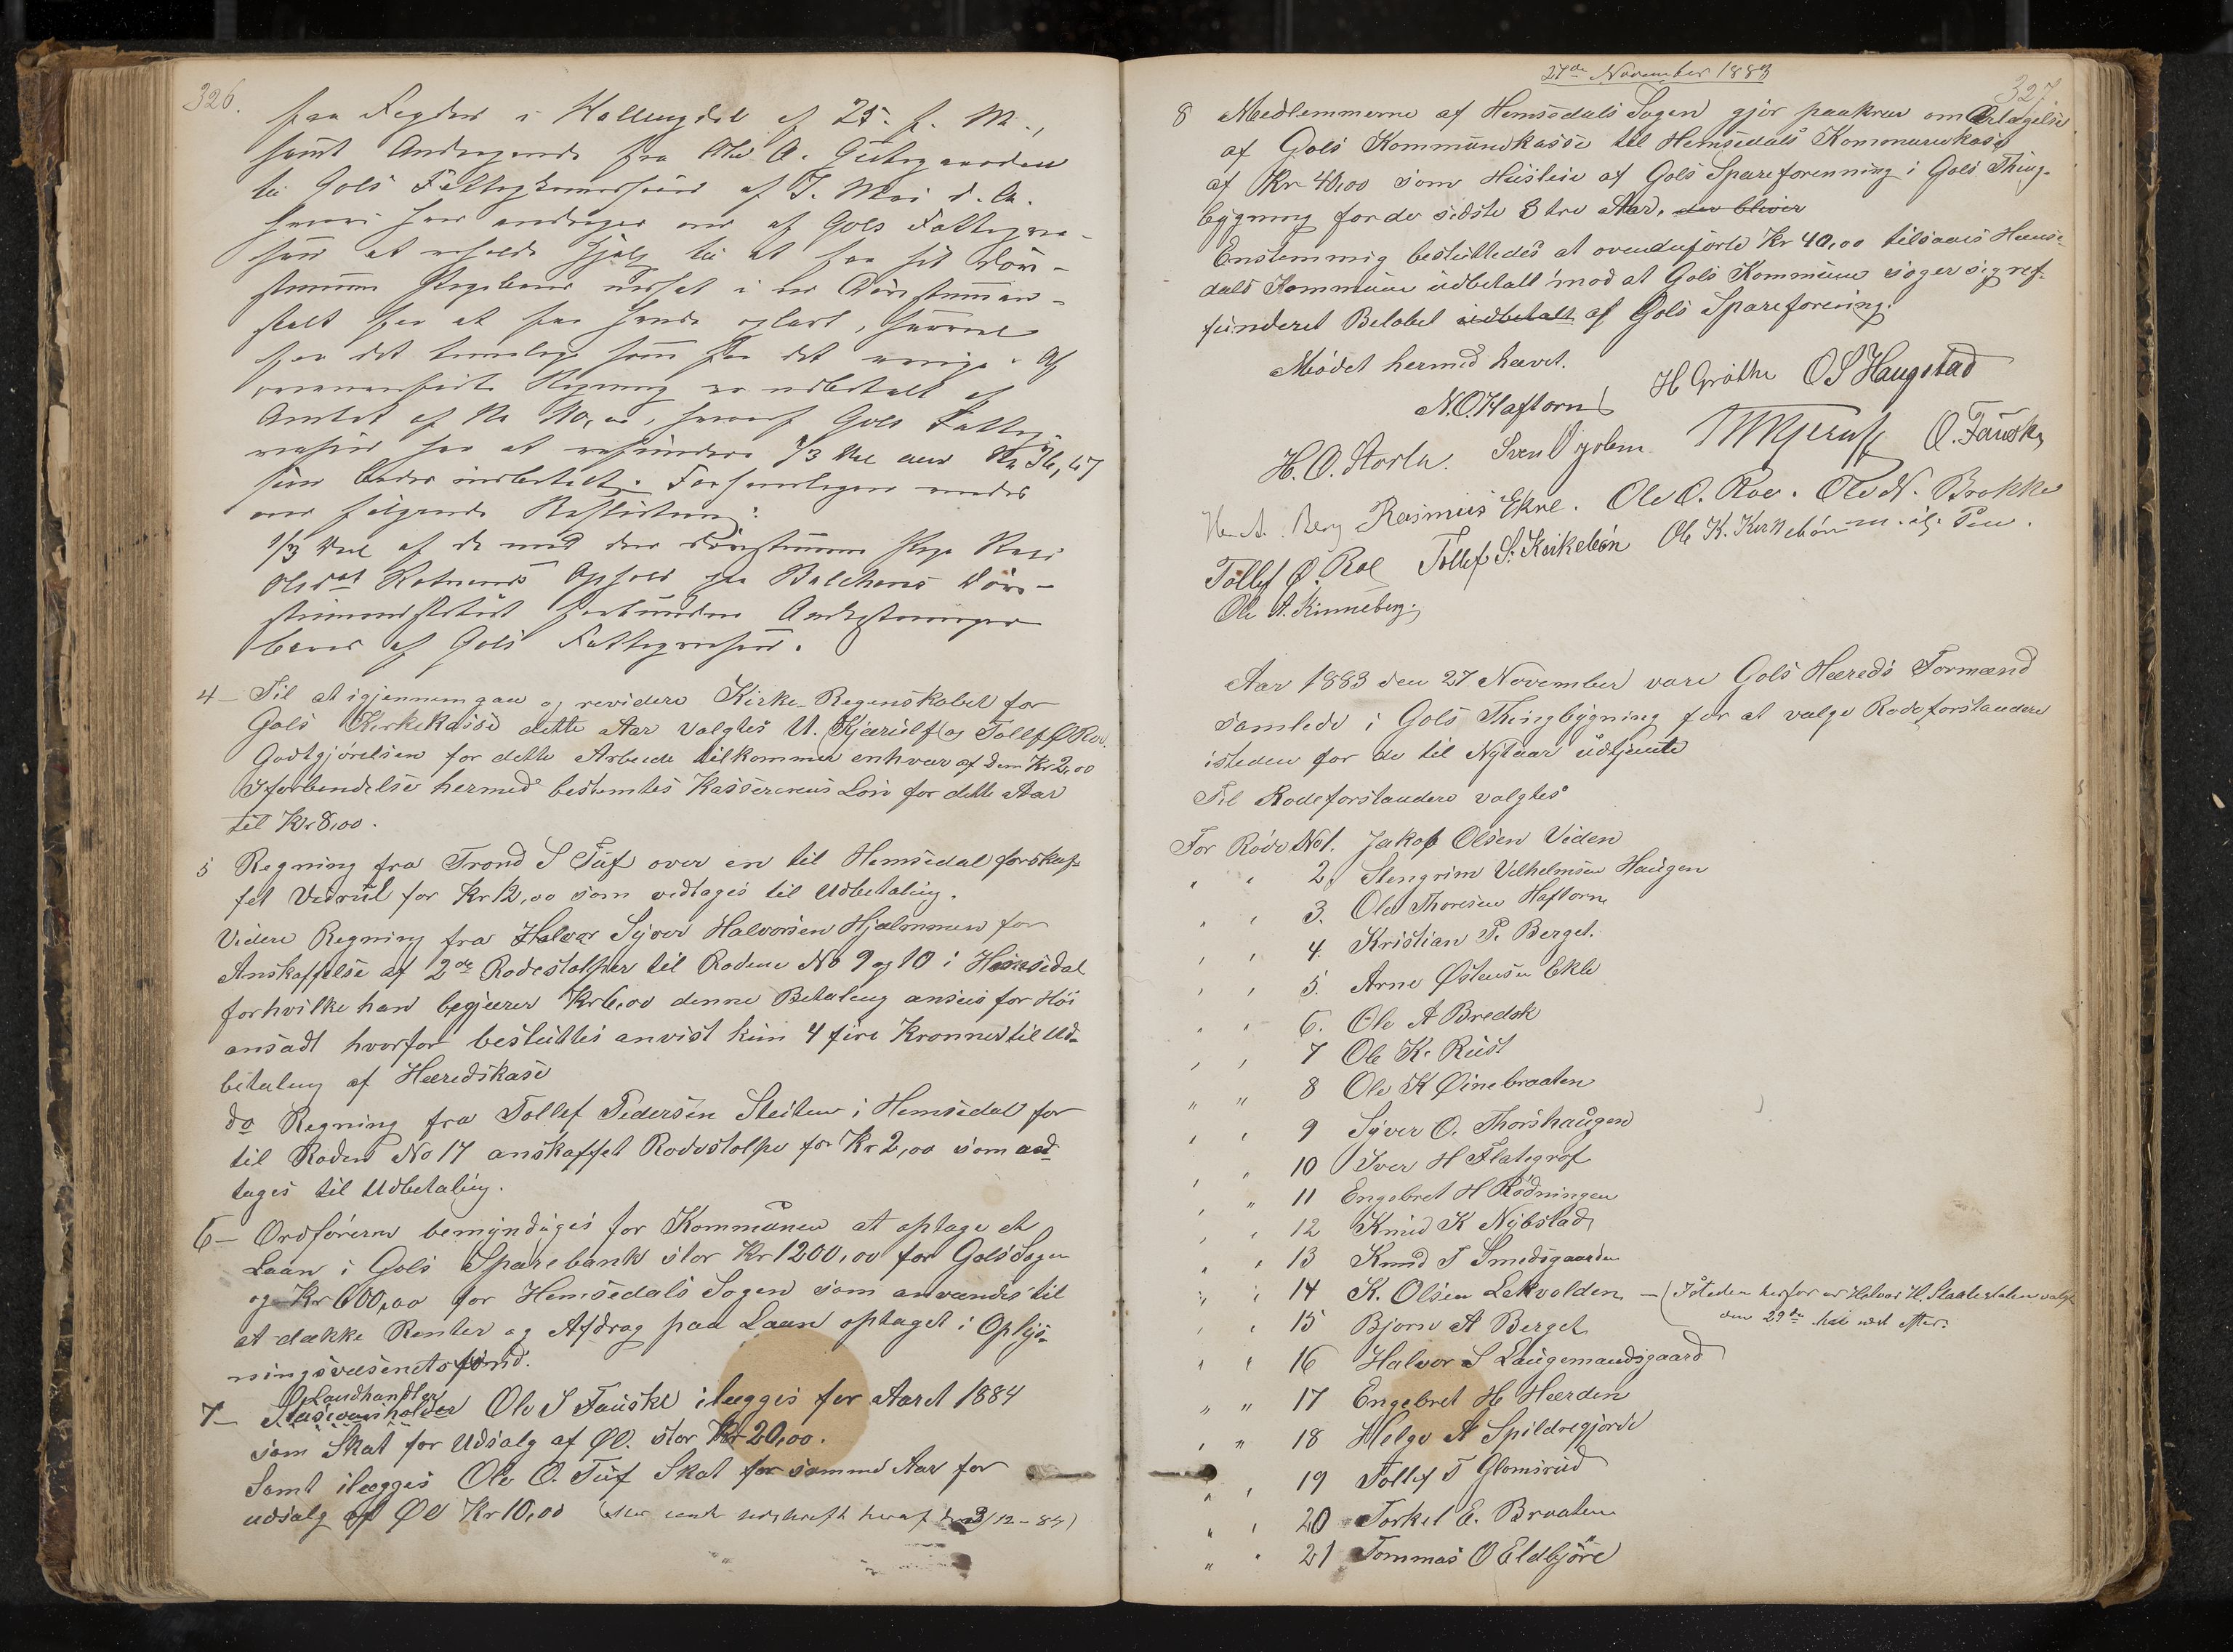 326.
fra Fogden i Hallingdal af 25. f. M.,
samt Andragende fra Ole O.
til Gols Fattigkommission af 7. Mai d. A.
hvori han andrager om af Gols Fattigvæ-
sen at erholde Hjælp til at faa sit døv-
stumme Pigebarn i en Døvstumman-
stalt for at faa hende oplært, saavel
for det som for det øvrige. Af
Regning er udbetalt af
Amtet af Kr 110,00, hvoraf Gols Fattig-
væsen har at refundere 1/3 Del med Kr 36,67
som bedes indbetalt. Forsamlingen
om følgende Beslutning:
1/3 Del af de med den døvstumme Pige
Olsdat Ophold paa Balchens Døv-
stummeinstitut forbundne Omkostninger
bæres af Gols Fattigvæsen.
4 - Til at igjennemgaa og revidere Kirke-Regnskabet for
Gols Kirkekasse dette Aar valgtes U. Kjærulf og Tollef Ø Roe.
Godtgjörelsen for dette Arbeide tilkommer enhver af dem Kr 2,00
Iforbindelse hermed bestemtes Kassererens Lön for dette Aar
til Kr 8,00.
5 Regning fra Trond S Tuf over en til Hemsedal forskaf-
fet Veirul for Kr 12,00 som vedtages til Udbetaling.
Videre Regning fra Halvor Syver Halvorsen Hjælmmen for
Anskaffelse af 2de Rodestolper til Rodene No 9 og 10 i Hemsedal
for hvilke han begjærer Kr 6,00 denne Betaling ansees for Höi
ansadt hvorfor besluttes anvist kun 4 fire Kronner til Ud-
betaling af Heredskase
do Regning fra Tollef Pedersen Steiten i Hemsedal for
til Roden No 17 anskaffet Rodestolpe for Kr 2,00 som ved
tages til Udbetaling.
6 - Ordföreren bemyndiges for Kommunen at optage et
Laan i Gols Sparebank stor Kr 1200,00 for Gols Sogn
og Kr 600,00 for Hemsedals Sogen som anvendes til
at dække Renter og Afdrag paa Laan optaget i Oplys-
ningsvæsenets fond.
Landhandler
7 - Ole S Fauske ilægges for Aaret 1884
som Skat for Udsalg af Øl. stor Kr 20,00.
Samt ilægges Ole O. Tuf Skat for samme Aar for
udsalg af Øl Kr 10,00 (Udskrift heraf 3/12-84)
27de November 1883
327
8 Medlemmerne af Hemsedals Sogen gjör paakrav om Ærlægelse
af Gols Kommunekasse til Hemsedals Kommunekasse
af Kr 40,00 som Husleie af Gols Spareforenning i Gols Thing-
bygning for de sidste 3 tre Aar. der bliver
Enstemmig besluttedes at ovenanførte Kr 40,00 tilsaais Hemse-
dals Kommune udbetalt mod at Gols Kommune söger sig ref-
funderet Belöbet udbetalt af Gols Spareforening.
Mödet hermed hævet.
N.O. Haftorn H Gröthe OS Haugstad
H. O. Storla. Sven O. Fauske
Berg Rasmus Ekre. Ole O. Roe. Ole N. Brokke
Tollef Ø. Roe Tollef S. Kirkebön Ole K. Kirkebön m. i. Pen.
Ole A. Kinneberg.
Aar 1883 den 27 November vare Gols Hereds Formænd
samlede i Gols Thingbygning for at vælge Rodeforstandere
isteden for de til Nytaar udtjente
Til Rodeforstandere valgtes
For Rode No 1. Jakob Olsen Viden
" " 2. Stengrim Vilhelmsen Haugen
" " 3. Ole Thoresen Haftorn
" " 4. Kristian P. Berget.
" " 5. Arne Østensen Ekle
" " 6. Ole A Bredok
" " 7 Ole K. Rust
" " 8 Ole K Øinebraaten
" " 9 Syver O. Thorshaugen
" " 10 Iver H Flategraf
" " 11 Engebret H Rödningen
" " 12 Knud K Nybstad
" " 13 Knud T Smedsgaarden
" " 14 K. Olsen Lekvolden - (Isteden herfor er Halvor H. Slaatestølen valgt
den 29de Mai næst efter.
" " 15 Bjorn A Berget
" " 16 Halvor S Laugemandsgaard
" " 17 Engebret H Hærden
" " 18 Helge A Spildregjorde
" " 19 Tollef T Glomsrud
" " 20 Torkel E. Braaten
" " 21 Tommas O Eldbjöre